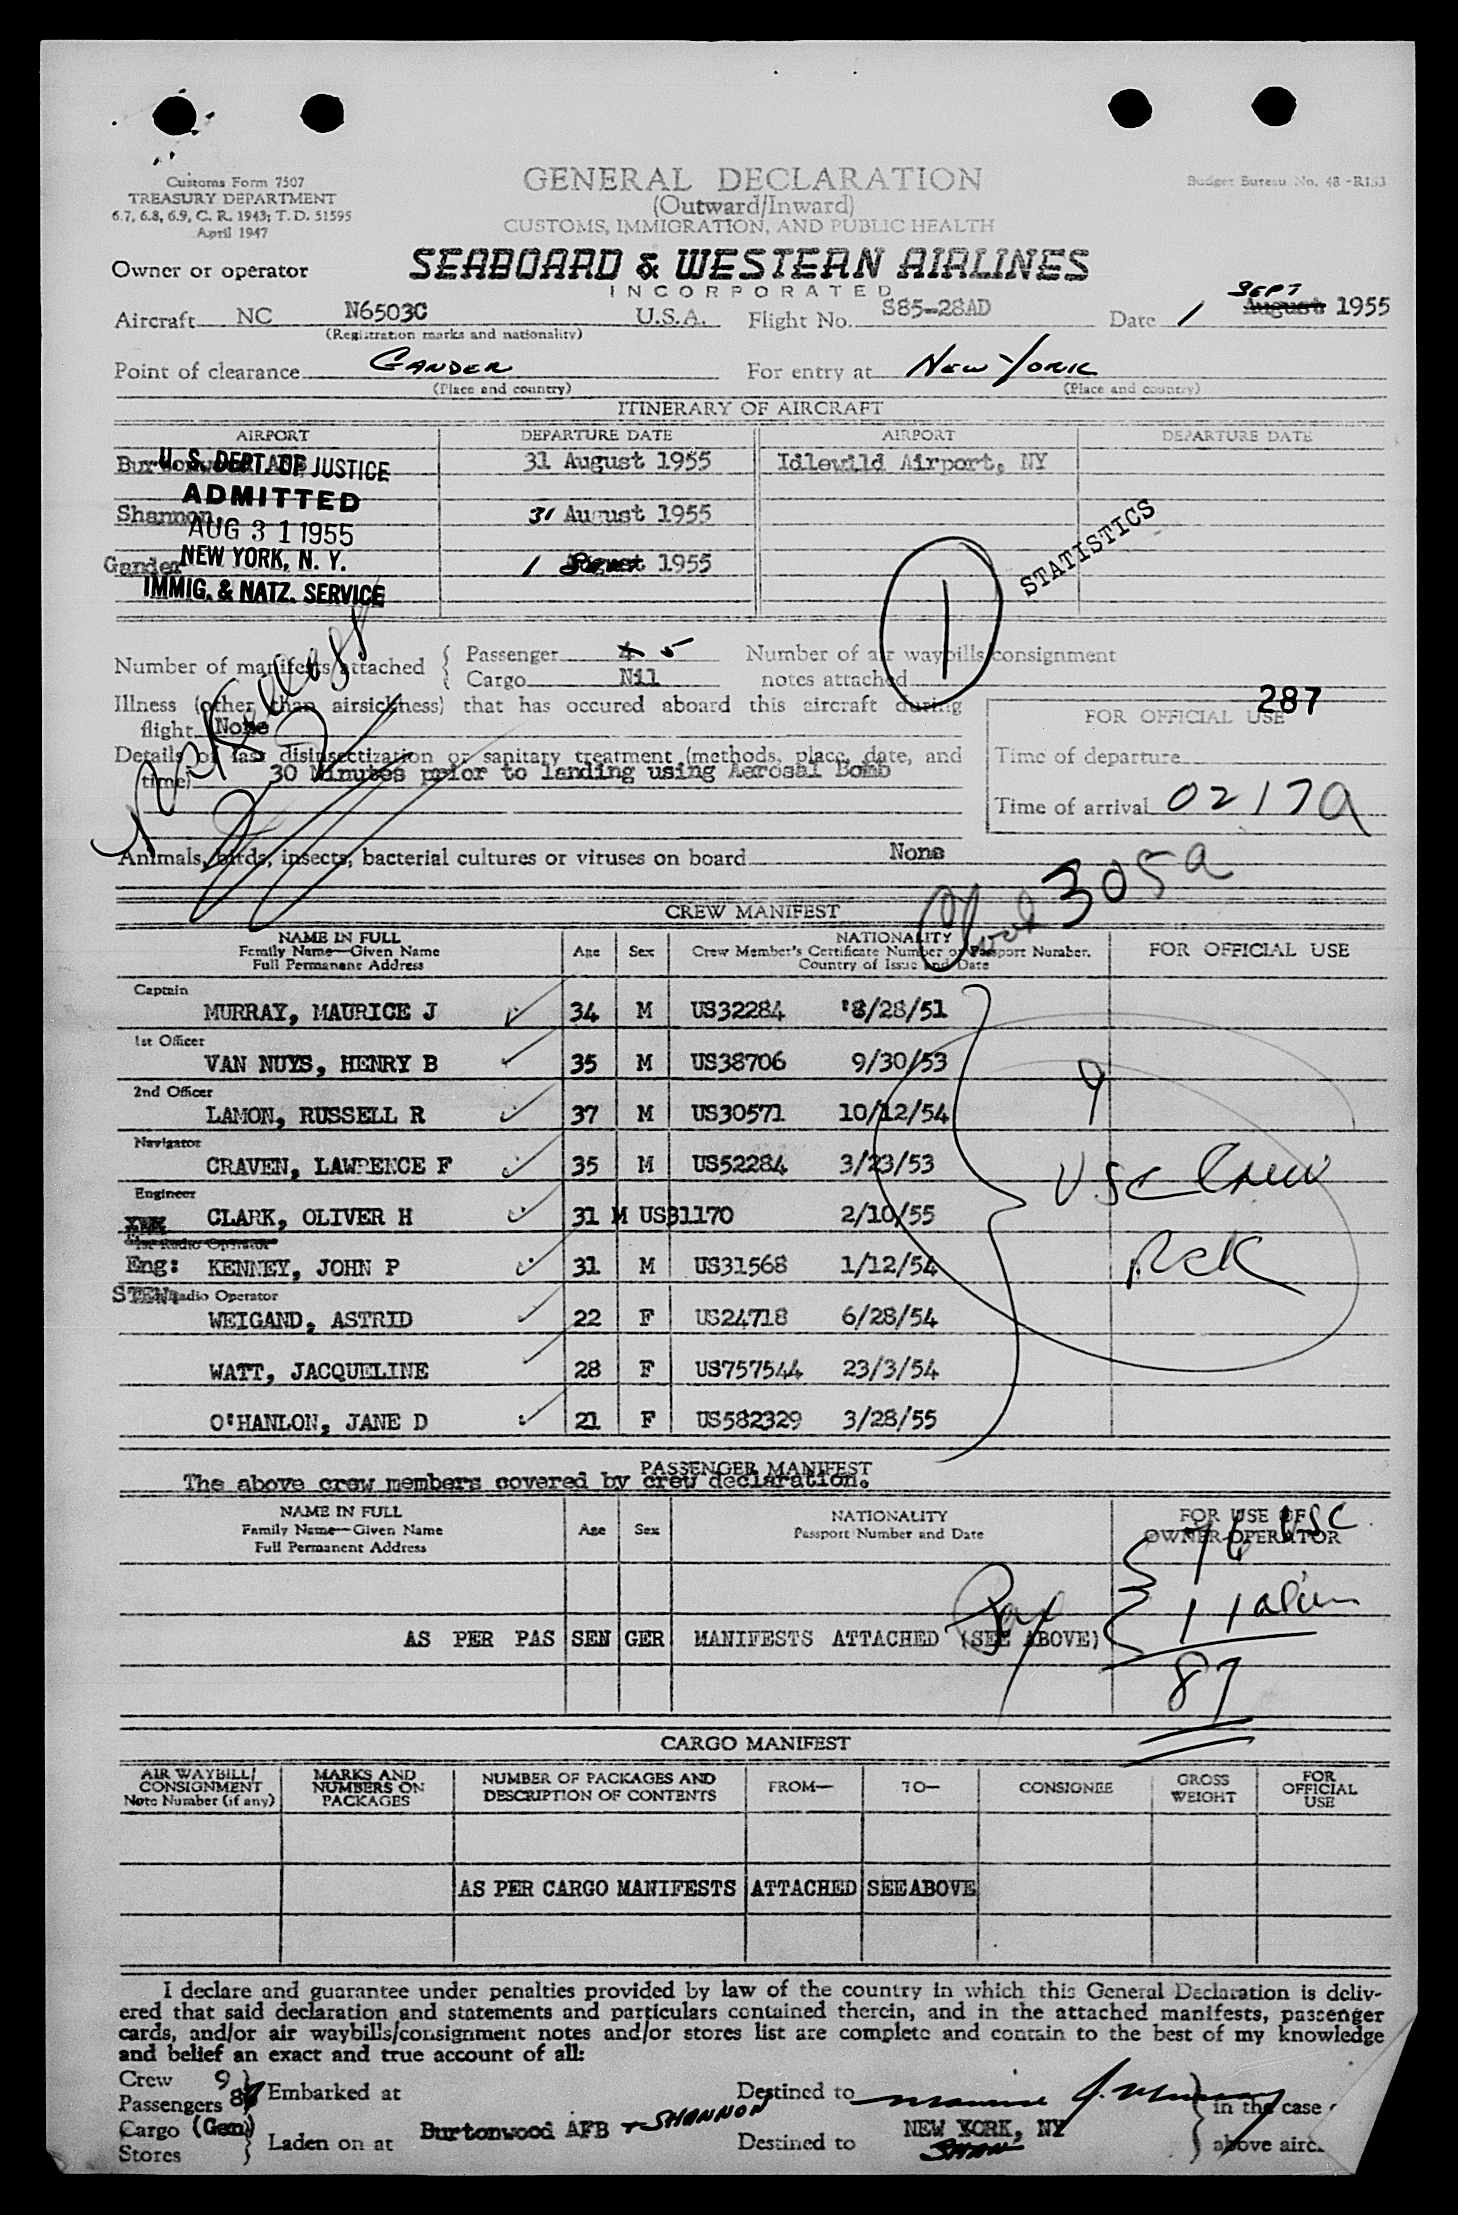 Customs Form 7507
TREASURY DEPARTMENT
6.7, 6.8, 6.9, C. R. 1943; T. D. 51595
April 1947
GENERAL DECLARATION
(Outward/Inward)
CUSTOMS, IMMIGRATION, AND PUBLIC HEALTH
Budget Bureau No. 48-R153
Owner or operator
SEABOARD & WESTERN AIRLINES
INCORPORATED
Aircraft NC N6503C U.S.A. Flight No. S85-28AD Date 1 SEPT August 1955
(Registration marks and nationality)
Point of clearance GANDER For entry at NEW YORK
(Place and country) (Place and country)
ITINERARY OF AIRCRAFT
AIRPORT DEPARTURE DATE AIRPORT DEPARTURE DATE
31 August 1955 Idlewild Airport, NY
U. S. DEPT. OF JUSTICE
ADMITTED
Shannon 31 August 1955
AUG 31 1955
NEW YORK, N. Y.
Gander 1 1955
IMMIG. & NATZ. SERVICE
STATISTICS
1
Number of manifests attached { Passenger 4 5 Number of air waybills/consignment
Cargo Nil notes attached
Illness (other than airsickness) that has occured aboard this aircraft during
flight None
287
FOR OFFICIAL USE
Details of last disinsectization or sanitary treatment (methods, place, date, and
time) 30 Minutes prior to landing using Aerosal Bomb
Time of departure
Time of arrival 0217a
Animals, birds, insects, bacterial cultures or viruses on board None
305a
CREW MANIFEST
NAME IN FULL
Family Name—Given Name
Full Permanent Address
Age Sex
NATIONALITY
Crew Member's Certificate Number or Passport Number.
Country of Issue and Date
FOR OFFICIAL USE
Captain
MURRAY, MAURICE J 34 M US32284 8/28/51
1st Officer
VAN NUYS, HENRY B 35 M US38706 9/30/53
2nd Officer
LAMON, RUSSELL R 37 M US30571 10/12/54
Navigator
CRAVEN, LAWRENCE F 35 M US52284 3/23/53
Engineer
CLARK, OLIVER H 31 M US31170 2/10/55
1st Radio Operator
Eng: KENNEY, JOHN P 31 M US31568 1/12/54
STEW: Radio Operator
WEIGAND, ASTRID 22 F US24718 6/28/54
WATT, JACQUELINE 28 F US757544 23/3/54
O'HANLON, JANE D 21 F US582329 3/28/55
9
USC Crew
PASSENGER MANIFEST
The above crew members covered by crew declaration.
NAME IN FULL
Family Name—Given Name
Full Permanent Address
Age Sex
NATIONALITY
Passport Number and Date
FOR USE OF
OWNER-OPERATOR
76 USC
11 alien
87
Pax
AS PER PAS SEN GER MANIFESTS ATTACHED (SEE ABOVE)
CARGO MANIFEST
AIR WAYBILL/
CONSIGNMENT
Note Number (if any)
MARKS AND
NUMBERS ON
PACKAGES
NUMBER OF PACKAGES AND
DESCRIPTION OF CONTENTS
FROM— TO— CONSIGNEE
GROSS
WEIGHT
FOR
OFFICIAL
USE
AS PER CARGO MANIFESTS ATTACHED SEE ABOVE
I declare and guarantee under penalties provided by law of the country in which this General Declaration is deliv-
ered that said declaration and statements and particulars contained therein, and in the attached manifests, passenger
cards, and/or air waybills/consignment notes and/or stores list are complete and contain to the best of my knowledge
and belief an exact and true account of all:
Crew 9
Passengers 87
Cargo (Gen)
Stores
Embarked at
Laden on at
Burtonwood AFB + SHANNON
Destined to
Destined to
Maurice J. Murray
NEW YORK, NY
in the case
above airc